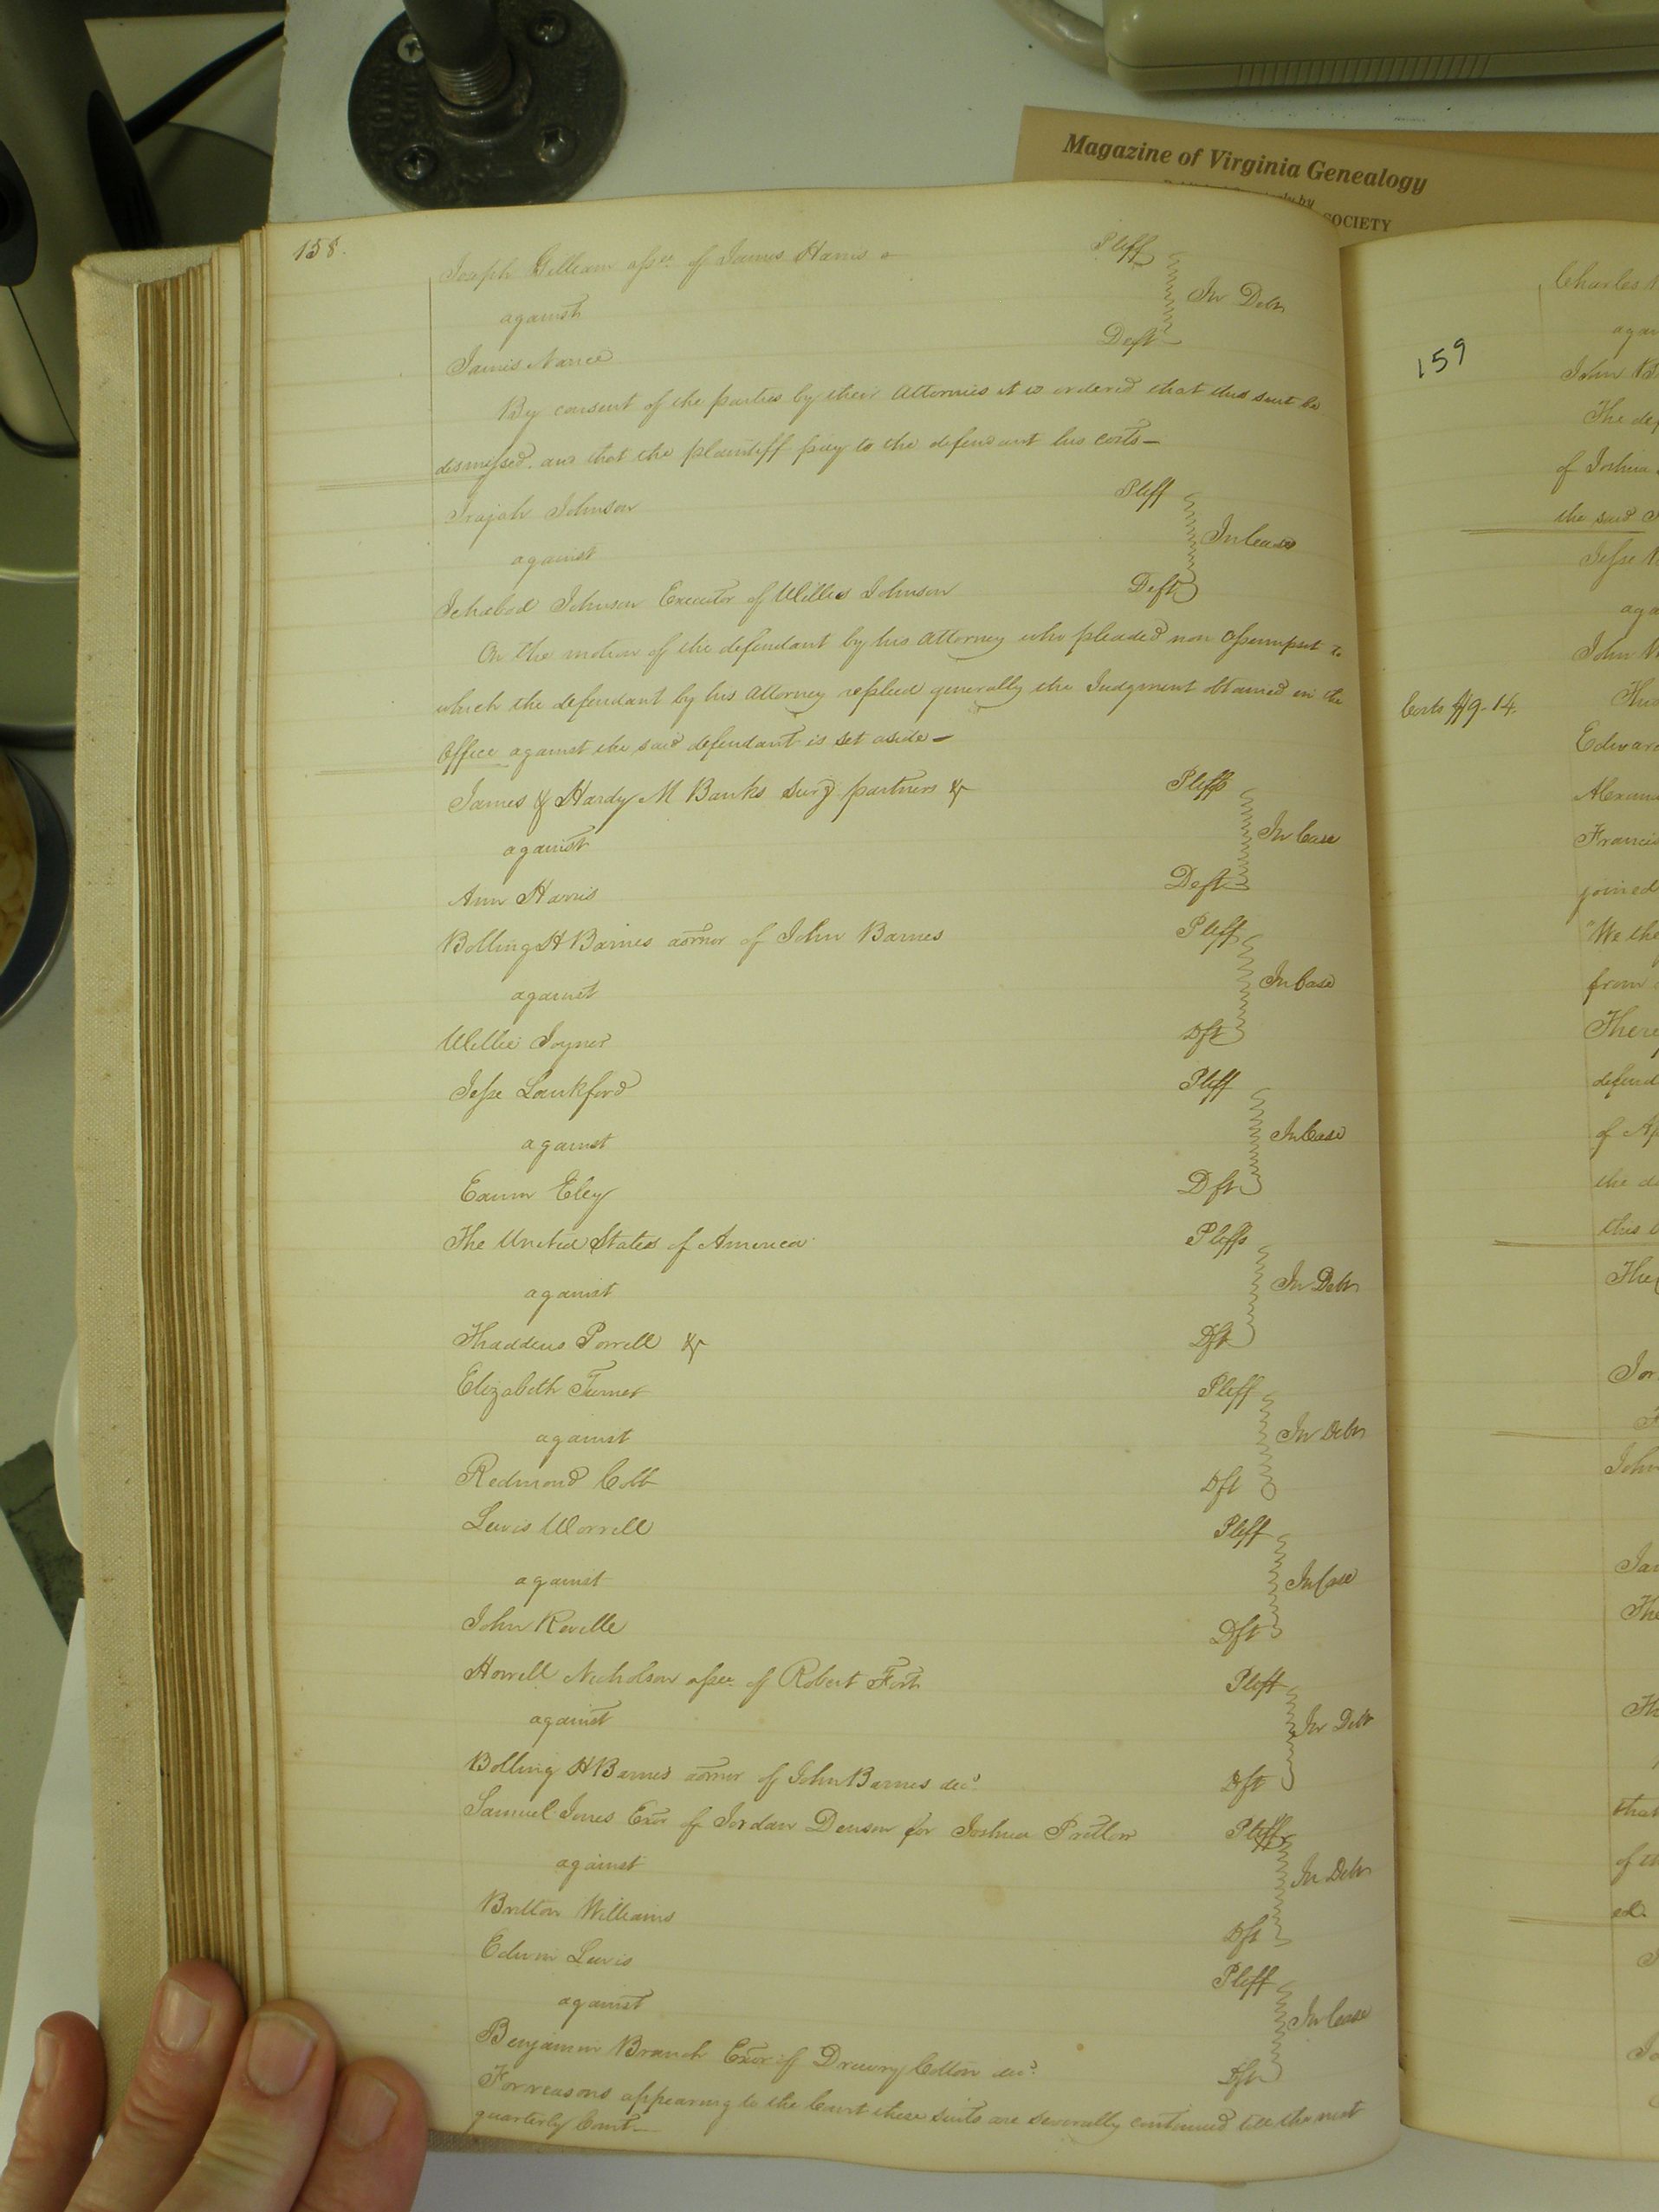 Magazine of Virginia Genealogy
by
SOCIETY
158.
Joseph Gilliam assee. of James Harris Pliff
against In Debt
James Nance Deft
By consent of the parties by their Attornies it is ordered that this suit be
dismissed. and that the plaintiff pay to the defendant his costs—
Irajah Johnson Pliff
against In Case
Ichabod Johnson Executor of Willis Johnson Deft
On the motion of the defendant by his Attorney who pleaded non Assumpsit to
which the defendant by his Attorney replied generally the Judgment obtained in the
Office against the said defendant is set aside—
James & Hardy M Banks surg partners & Pliffs
against In Case
Ann Harris Deft
Bolling H Barnes admor of John Barnes Pliff
against In Case
Willie Joyner Dft
Jesse Lankford Pliff
against In Case
Eley Dft
The United States of America Pliffs
against In Debt
Thaddeus Porrell & Dft
Elizabeth Turner Pliff
against In Debt
Redmond Cobb Dft
Lewis Worrell Pliff
against In Case
John Reville Dft
Howell Nicholson assee. of Robert Fort Pliff
against In Debt
Bolling H Barnes admor of John Barnes decd. Dft
Samuel Jones Exor of Jordan Denson for Joshua Pretlow Pliff
against In Debt
Britton Williams Dft
Edwin Lewis Pliff
against In Case
Benjamin Branch Exor of Drewry Cotton decd. Dft
For reasons appearing to the Court these suits are severally continued till the next
quarterly Court—
159
Charles
John
The
of Joshua
the said
Jesse
John
Costs $9-14.
Edward
joined
"We the
from
defend
of
the
this
John
that